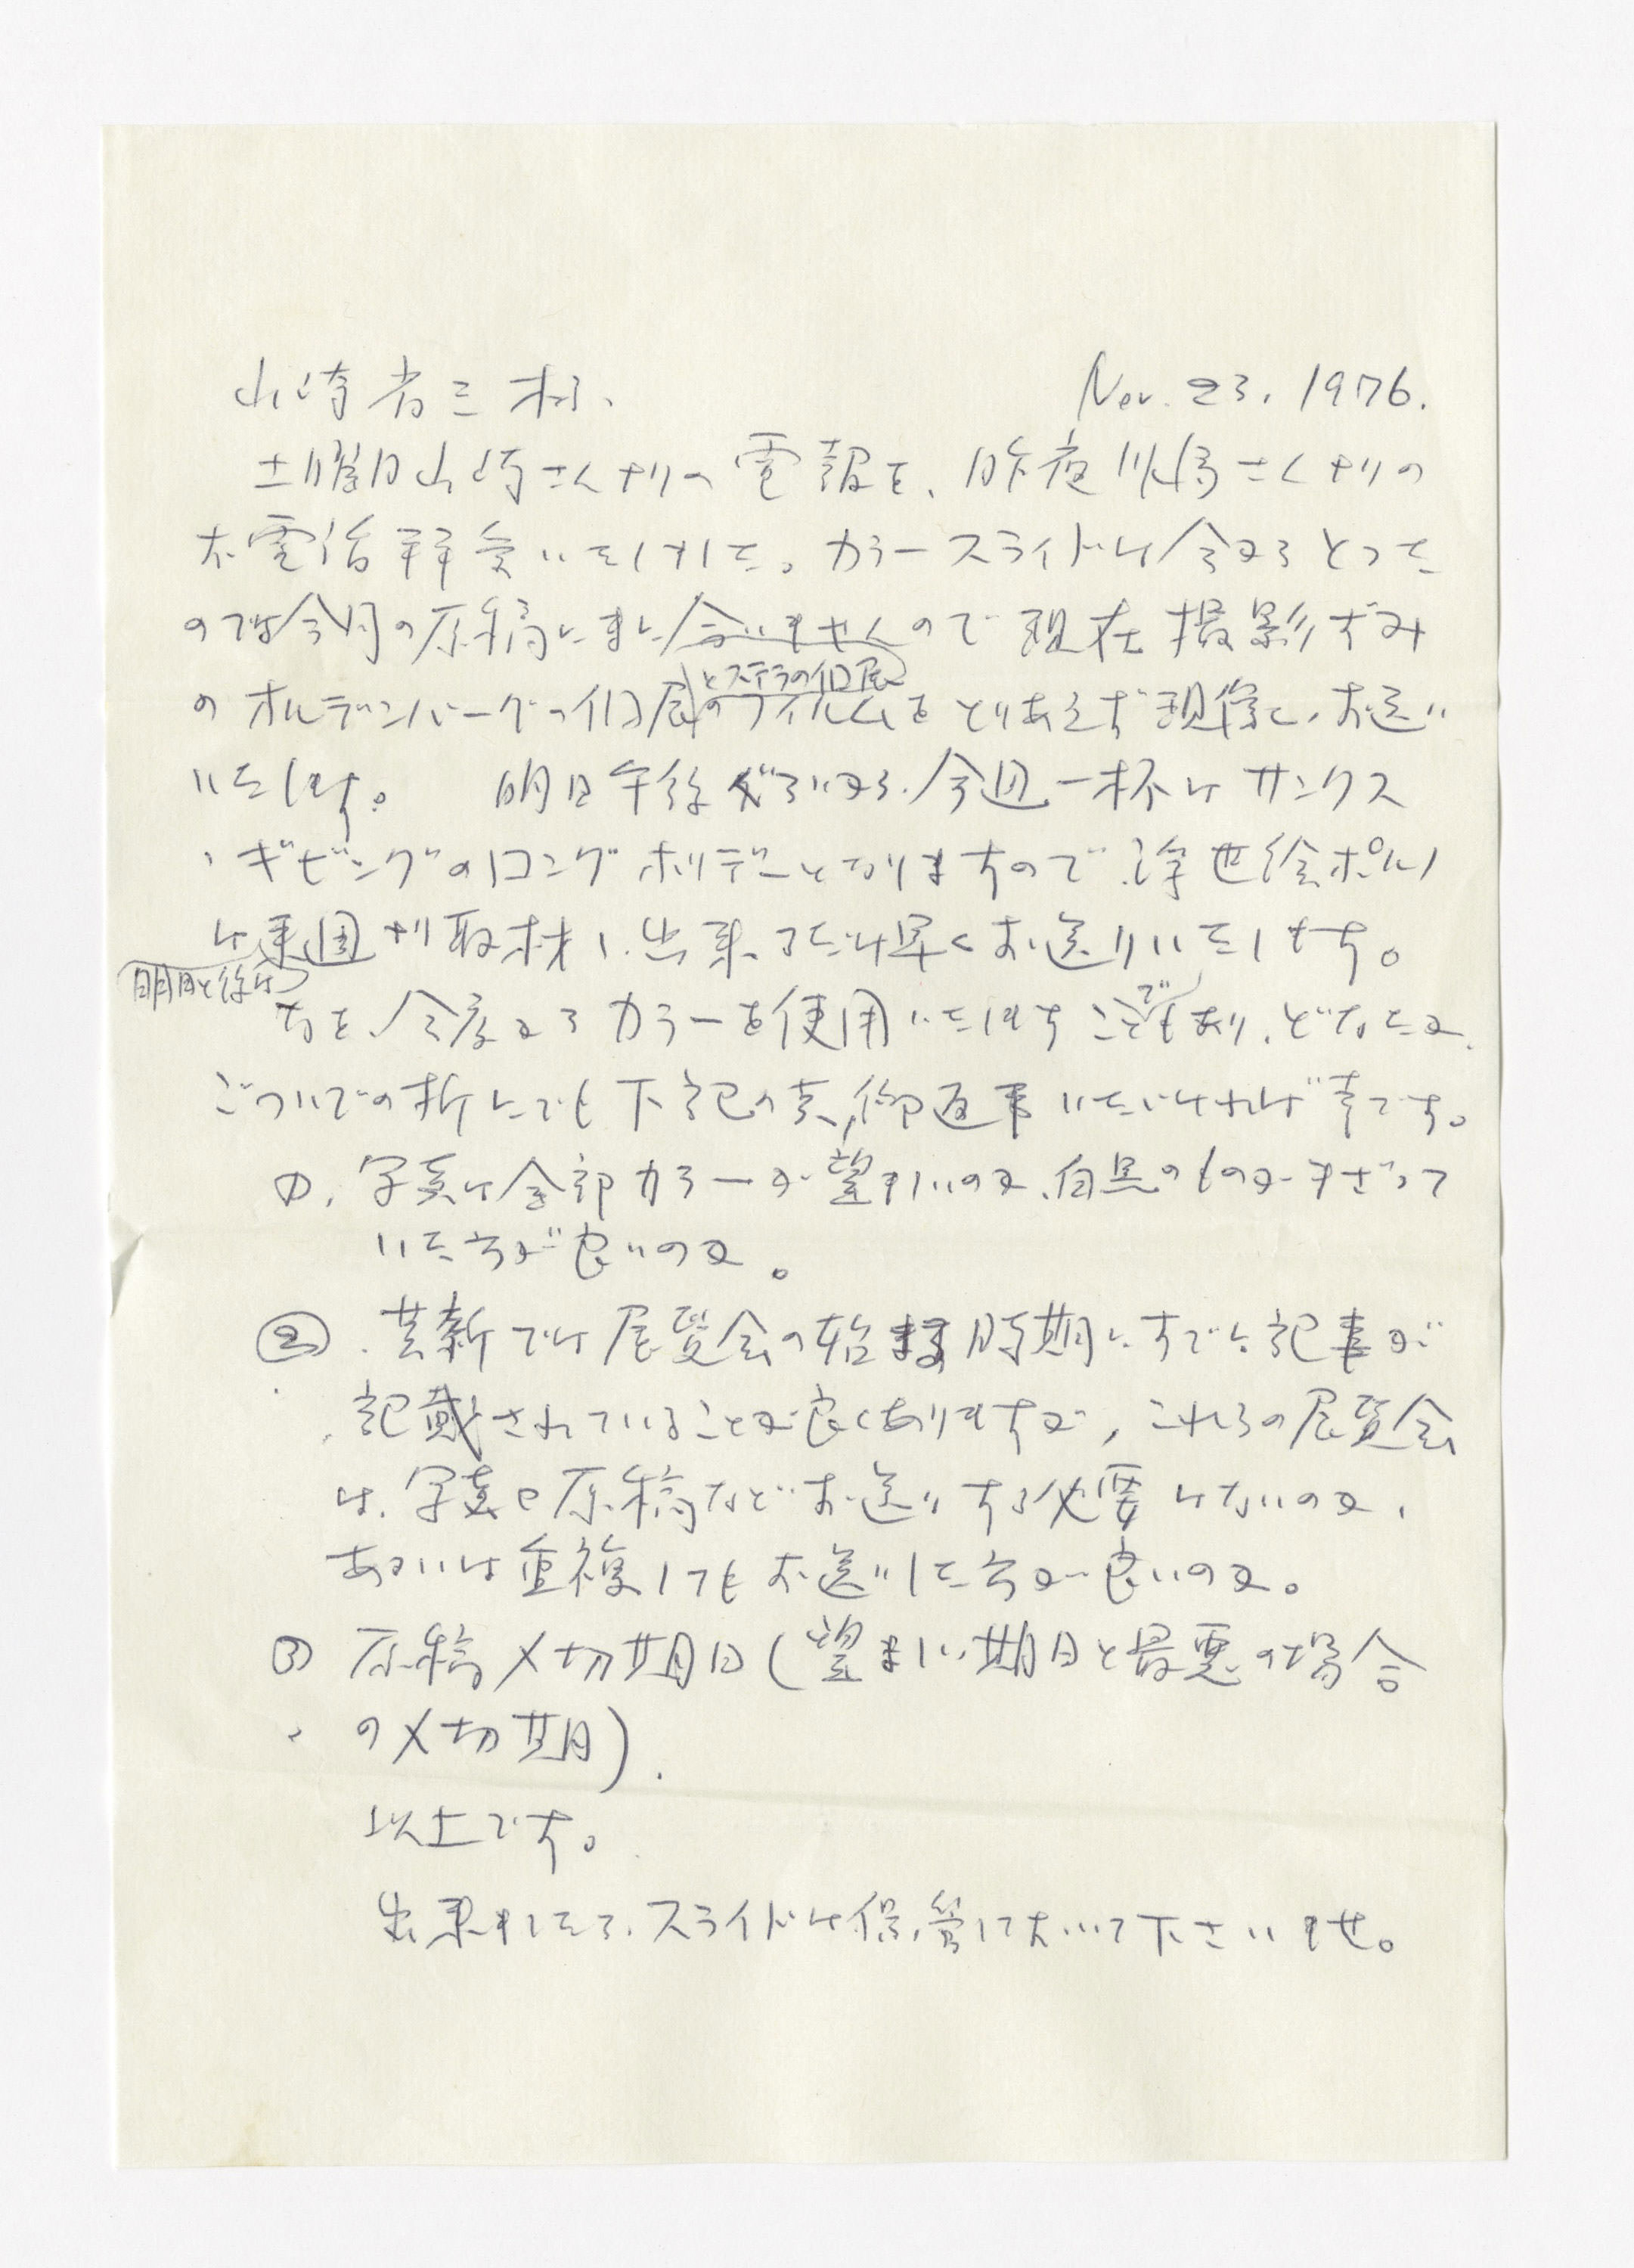 山崎省三様、 Nov. 23. 1976.
土曜日山崎さんよりの電報を、昨夜川嶋さんよりの
お電話拝受いたしました。カラースライドは今からとった
のでは今月の原稿にまに合いませんので現在撮影ずみ
のオルデンバーグの個展とステラの個展のフィルムをとりあえず現像し、お送り
いたします。 明日午後ぐらいから、今週一杯はサンクス
ギビングのロングホリデーとなりますので、浮世絵ポルノ
は来週より取材し、出来るだけ早くお送りいたします。
明日と後は
なを、今度からカラーを使用いたしますことでもあり、どなたか
ごついでの折にでも下記の点、御返事いただければ幸です。
①. 写真は全部カラーが望ましいのか、白黒のものがまざって
いた方が良いのか。
②. 芸新では展覧会の始まる時期にすでに記事が
記載されていることが良くありますが、これらの展覧会
は、写真や原稿などお送りする必要はないのか、
あるいは重複してもお送りした方が良いのか。
③ 原稿〆切期日(望ましい期日と最悪の場合
の〆切期).
以上です。
出来ましたら、スライドは保管しておいて下さいませ。